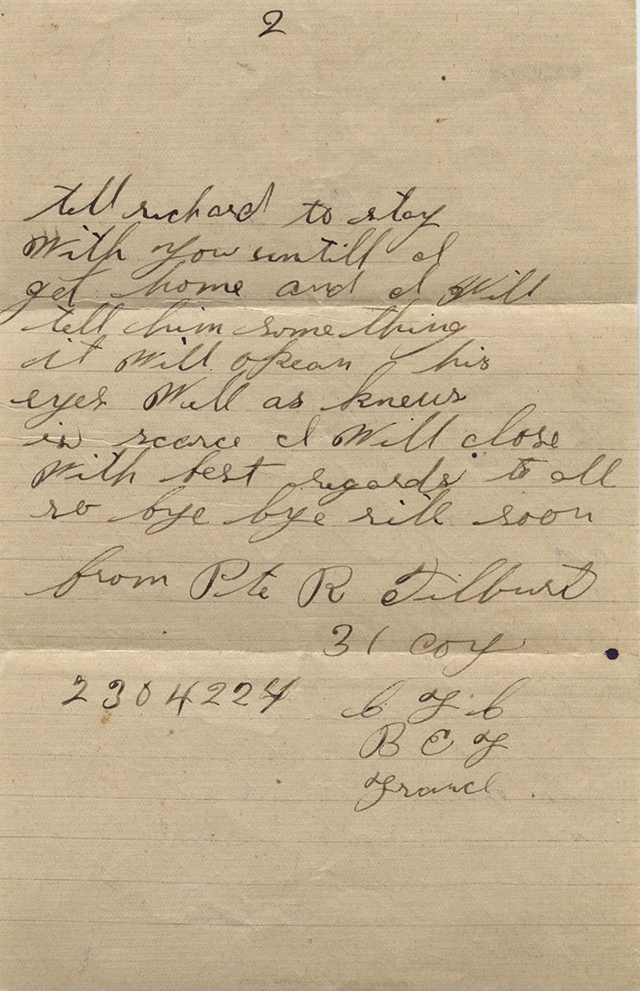 2
tell richard to stay
With you untill I
get home and I Will
tell him some thing
it Will opean his
eyes Well as knews
is scarce I Will close
With best regards to all
so bye bye till soon
from Pte R Tilburt
31 coy
2304224 C F C
B E F
France